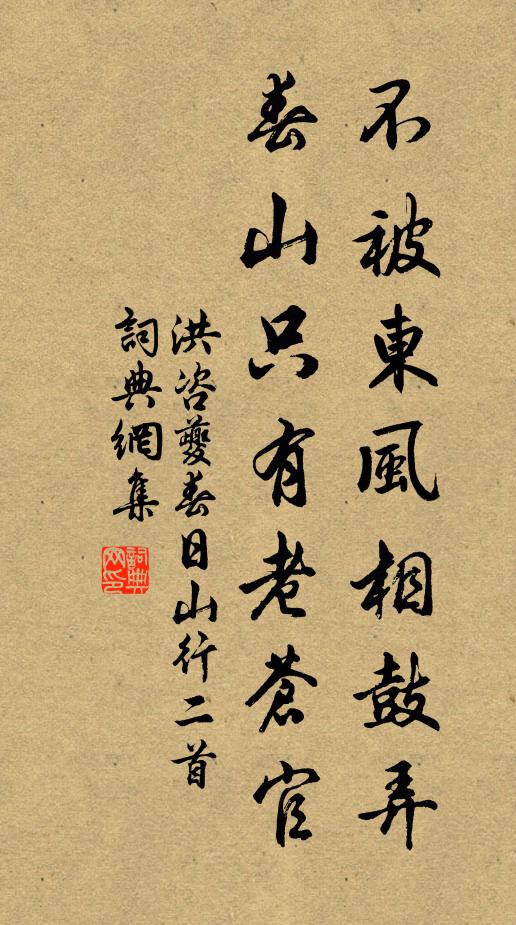 不被東風相鼓弄
春山只有老蒼官
洪咨夔春日山行二首
詞典網集
詞典
网印